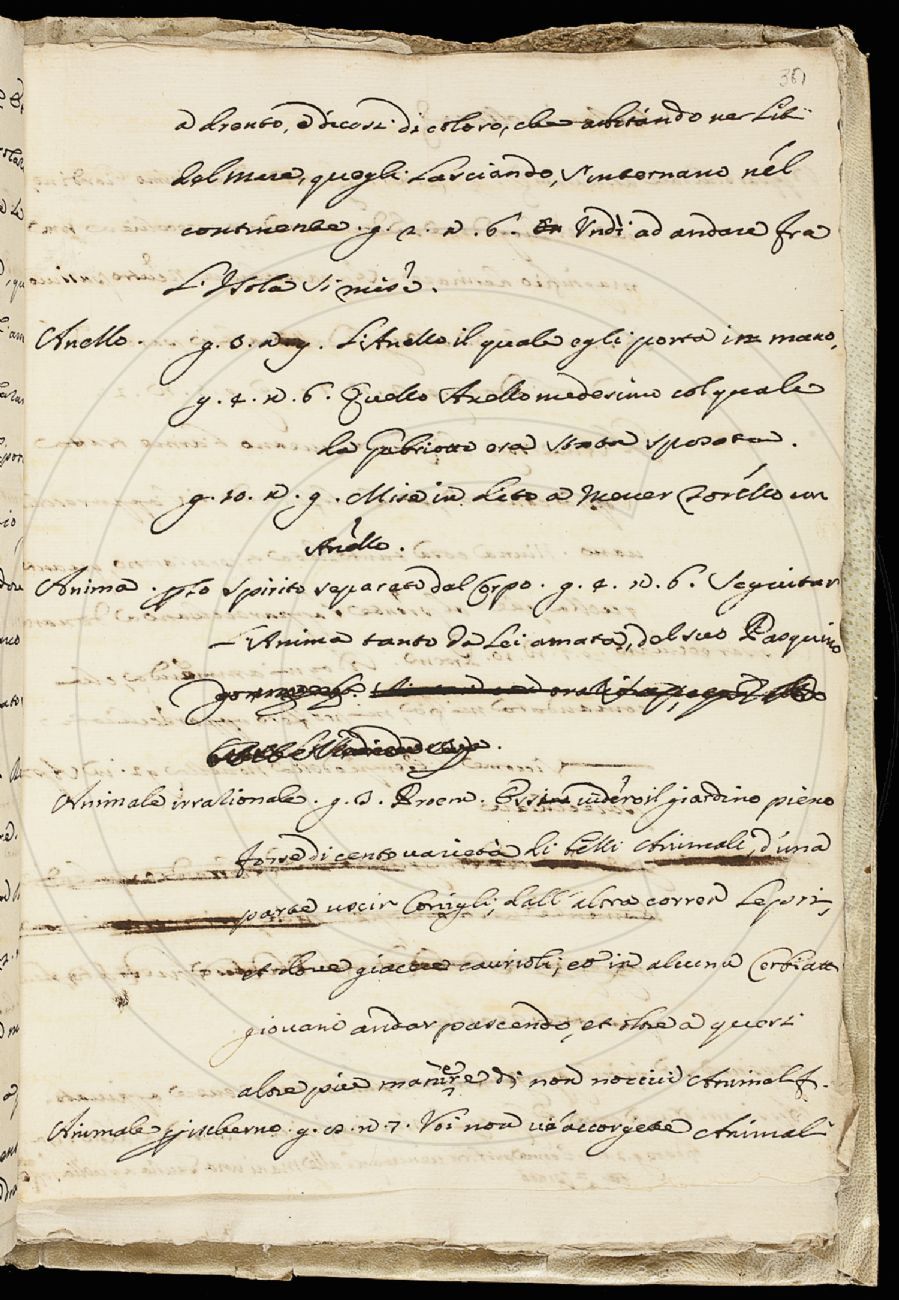 361
a drento, e dicesi di coloro, che abitando ne Liti
del Mare, quegli Lasciando, s'internano nél
continente. g. 2. n. 6. Undi ad andare fra
L'Isole si mise.
Anello. g. 3. n. 9. L'Anello il quale egli porta in mano,
g. 4. n. 6. Quello Anello medesimo col quale
la Gabriotto era stata sposata.
g. 10. n. 9. Mise in dito a Messer Toréllo un
Anéllo.
Anima. p Lo spirito separato dal Corpo. g. 4. n. 6. Seguitar
L'Anima tanto da Lei amata, del suo Pasquino
Animale irrationale. g. 3. Proem. Essi videro il giardino pieno
forse di cento varietà di belli Animali, d'una
parte uscir Conigli, dall'altra correr Lepri,
et dove giacere caurioli, et in alcuna Cerbiatti
giovani andar pascendo, et oltre a questi
altre più maniere di non nocivi Animali.
Animale p ischerno. g. 8. n. 7. Voi non v'accorgete Animali